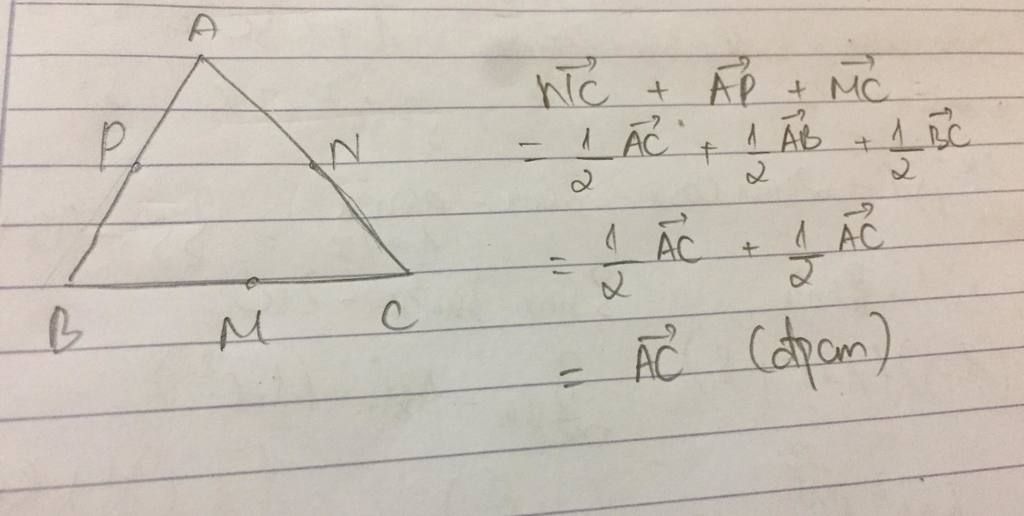 A
P
N
B
M
C
$\overrightarrow{NC} + \overrightarrow{AP} + \overrightarrow{MC}$
$= \frac{1}{2} \overrightarrow{AC} + \frac{1}{2} \overrightarrow{AB} + \frac{1}{2} \overrightarrow{BC}$
$= \frac{1}{2} \overrightarrow{AC} + \frac{1}{2} \overrightarrow{AC}$
$= \overrightarrow{AC}$ (đpcm)